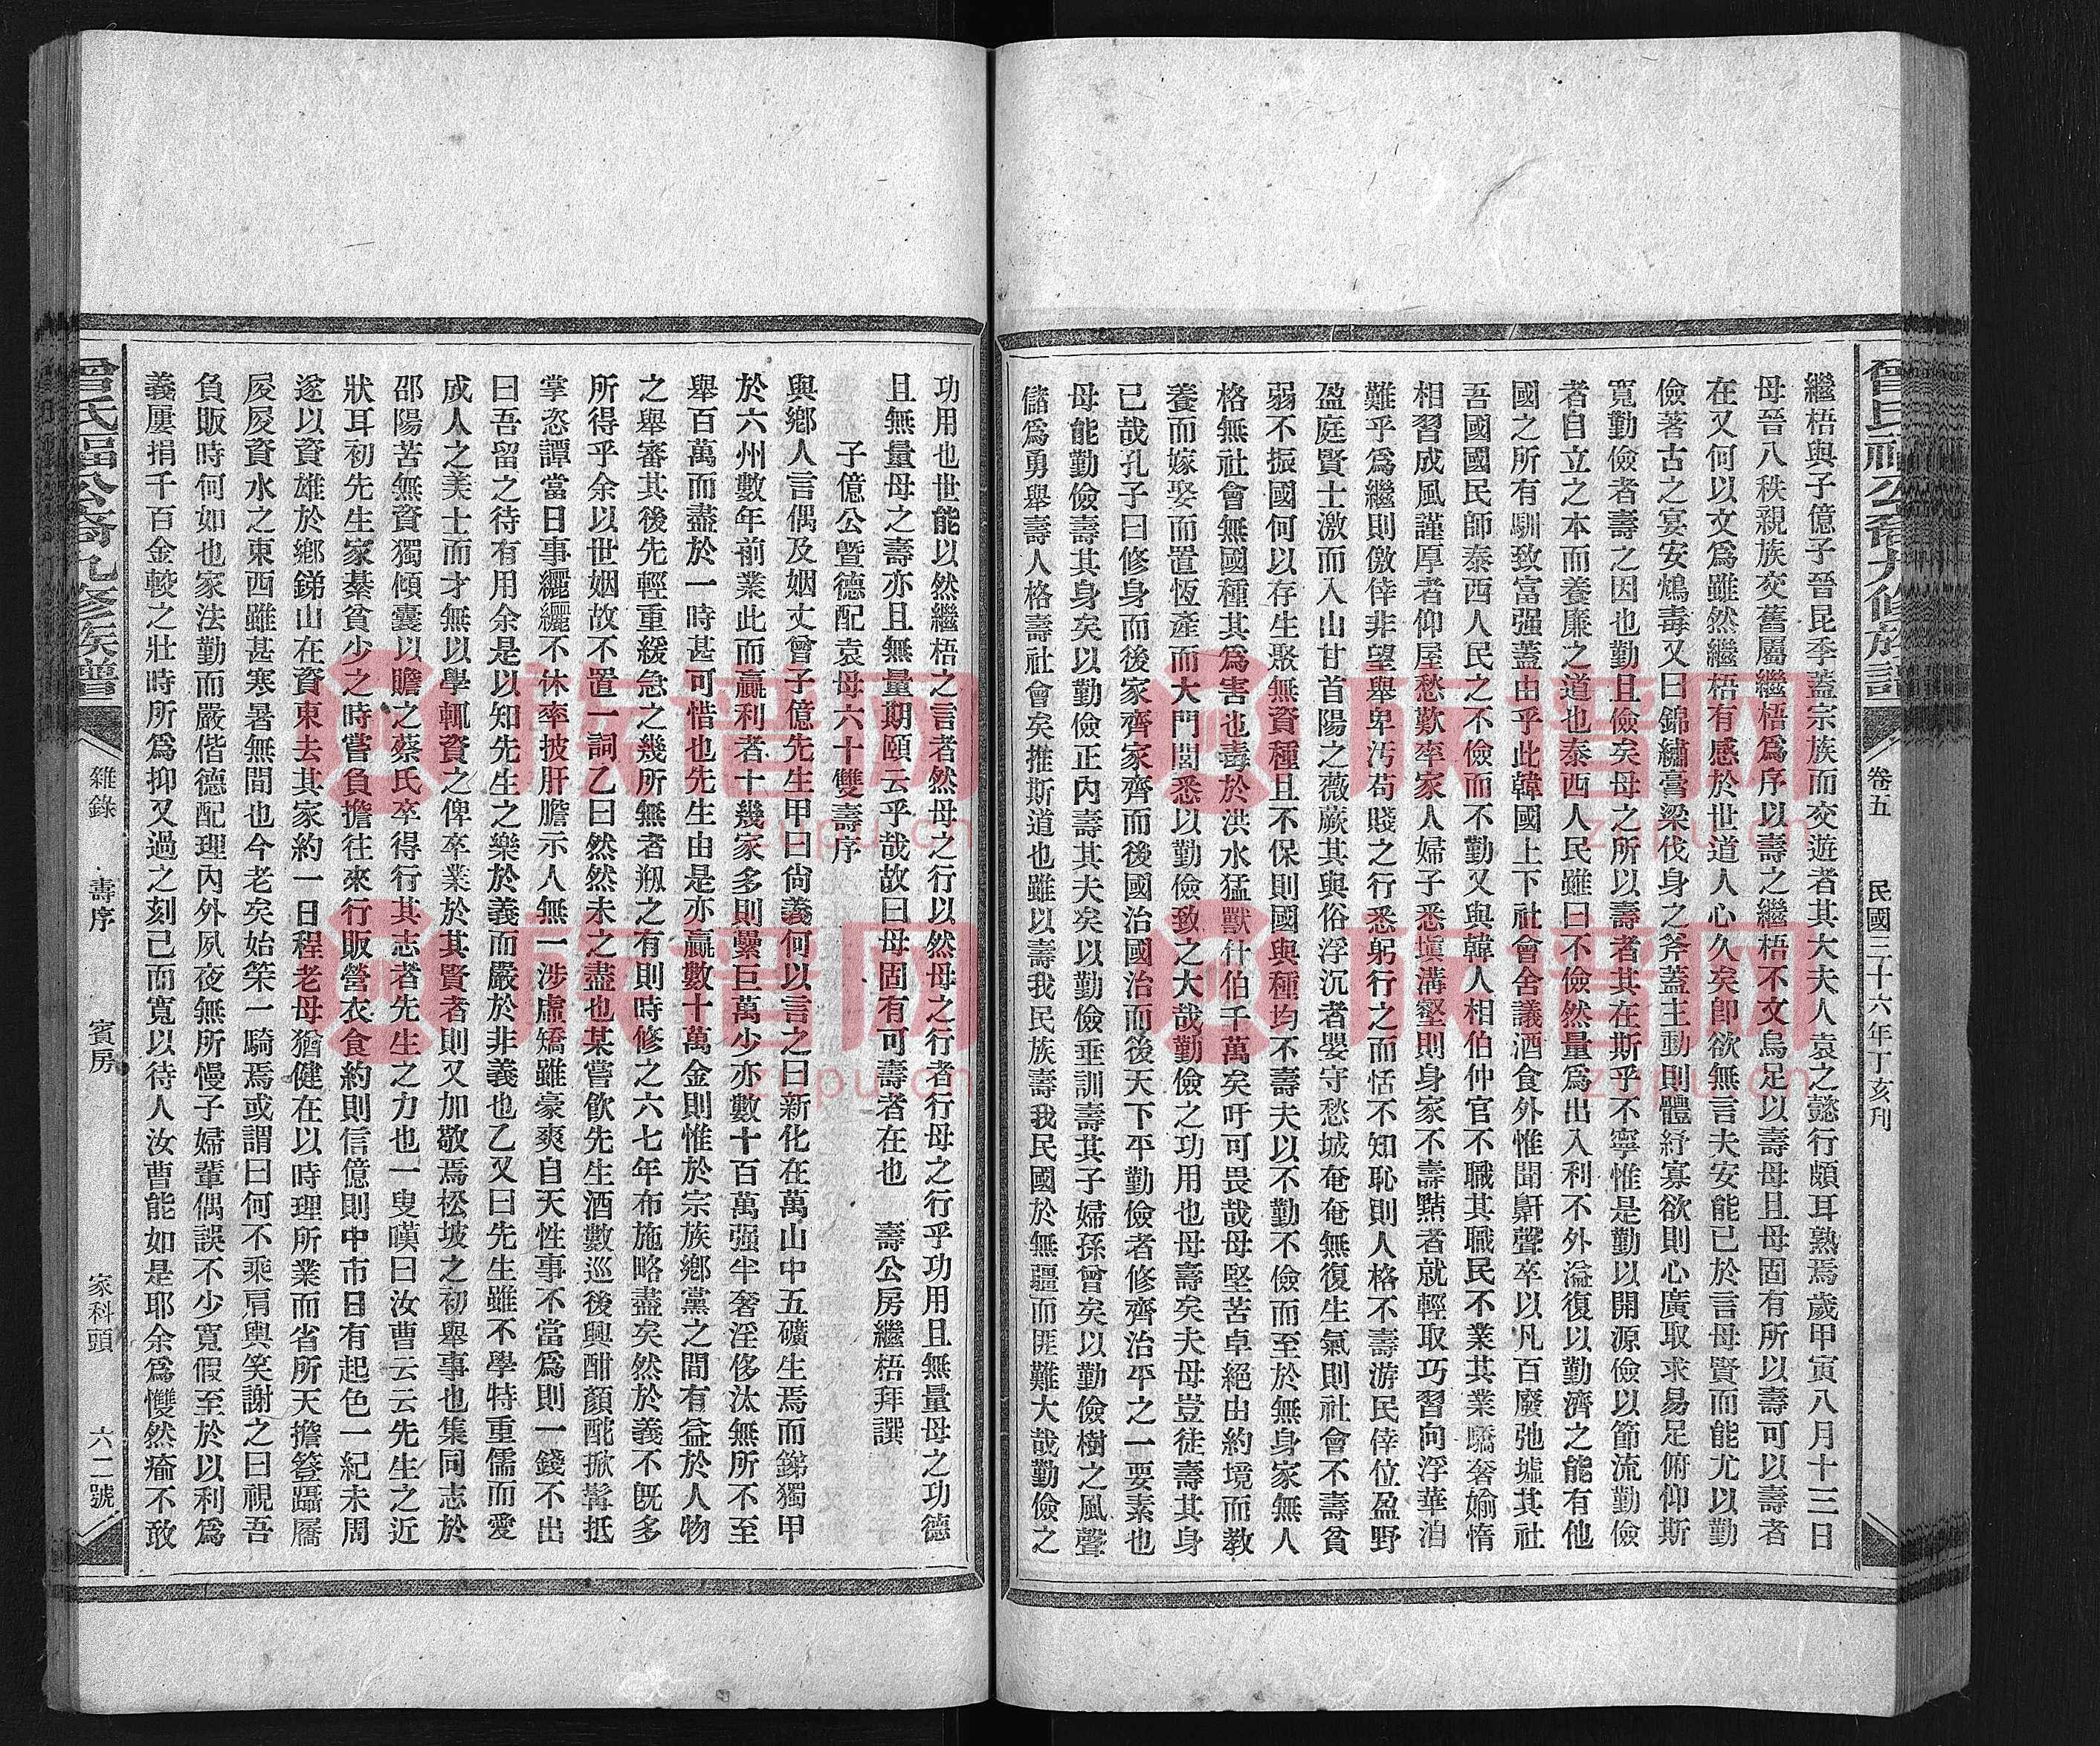 卷五　民國三十六年丁亥刋
繼梧與子億子晉昆季蓋宗族而交遊者其大夫人袁之懿行頗耳熟焉歲甲寅八月十三日
母晉八秩親族交舊屬繼梧爲序以壽之繼梧不文烏足以壽母且母固有所以壽可以壽者
在又何以文爲雖然繼梧有感於世道人心久矣卽欲無言夫安能已於言母賢而能尤以勤
儉著古之宴安鴆毒又曰錦繡膏梁伐身之斧蓋主動則體紓寡欲則心廣取求易足俯仰斯
寬勤儉者壽之因也勤且儉矣母之所以壽者其在斯乎不寧惟是勤以開源儉以節流勤儉
者自立之本而養廉之道也泰西人民雖曰不儉然量爲出入利不外溢復以勤濟之能有他
國之所有馴致富强蓋由乎此韓國上下社會舍議酒食外惟聞鼾聲卒以凡百廢弛墟其社
吾國國民師泰西人民之不儉而不勤又與韓人相伯仲官不職其職民不業其業驕奢婾惰
相習成風謹厚者仰屋愁歎率家人婦子悉塡溝壑則身家不壽黠者就輕取巧習向浮華泊
難乎爲繼則儌倖非望舉卑汚苟賤之行悉躬行之而恬不知恥則人格不壽游民倖位盈野
盈庭賢士激而入山甘首陽之薇蕨其與俗浮沉者嬰守愁城奄奄無復生氣則社會不壽貧
弱不振國何以存生聚無資種且不保則國與種均不壽夫以不勤不儉而至於無身家無人
格無社會無國種其爲害也毒於洪水猛獸什伯千萬矣吁可畏哉母堅苦卓絕由約境而敎
養而嫁娶而置恆產而大門閭悉以勤儉致之大哉勤儉之功用也母壽矣夫母豈徒壽其身
已哉孔子曰修身而後家齊家齊而後國治國治而後天下平勤儉者修齊治平之一要素也
母能勤儉壽其身矣以勤儉正內壽其夫矣以勤儉垂訓壽其子婦孫曾矣以勤儉樹之風聲
儲爲勇舉壽人格壽社會矣推斯道也雖以壽我民族壽我民國於無疆而匪難大哉勤儉之
功用也世能以然繼梧之言者然母之行以然母之行者行母之行乎功用且無量母之功德
且無量母之壽亦且無量期頤云乎哉故曰母固有可壽者在也　壽公房繼梧拜譔
子億公曁德配袁母六十雙壽序
與鄉人言偶及姻丈曾子億先生甲曰尙義何以言之曰新化在萬山中五礦生焉而銻獨甲
於六州數年前業此而贏利者十幾家多則纍巨萬少亦數十百萬强半奢淫侈汰無所不至
舉百萬而盡於一時甚可惜也先生由是亦贏數十萬金則惟於宗族鄉黨之間有益於人物
之舉審其後先輕重緩急之幾所無者剏之有則時修之六七年布施略盡矣然於義不旣多
所得乎余以世姻故不置一詞乙曰然然未之盡也某嘗飮先生酒數巡後興酣顏酡掀髯抵
掌恣譚當日事纚纚不休率披肝膽示人無一涉虛矯雖豪爽自天性事不當爲則一錢不出
曰吾留之待有用余是以知先生之樂於義而嚴於非義也乙又曰先生雖不學特重儒而愛
成人之美士而才無以學輒資之俾卒業於其賢者則又加敬焉松坡之初舉事也集同志於
邵陽苦無資獨傾囊以贍之蔡氏卒得行其志者先生之力也一叟嘆曰汝曹云云先生之近
狀耳初先生家綦貧少之時嘗負擔往來行販營衣食約則信億則中市日有起色一紀未周
遂以資雄於鄉銻山在資東去其家約一日程老母猶健在以時理所業而省所天擔簦躡屩
屐屐資水之東西雖甚寒暑無間也今老矣始筞一騎焉或謂曰何不乘肩輿笑謝之曰視吾
負販時何如也家法勤而嚴偕德配理內外夙夜無所慢子婦輩偶誤不少寬假至於以利爲
義屢捐千百金較之壯時所爲抑又過之刻己而寬以待人汝曹能如是耶余爲戄然瘉不敢
曾氏福公裔九修族譜
雜錄　壽序　賓房　家科頭　六二號
族谱网
zupu.cn